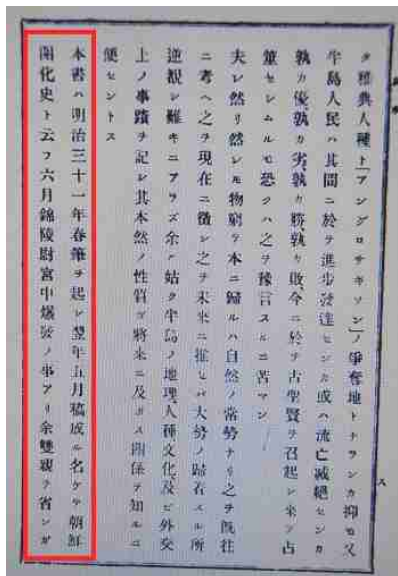 タ雅典人種ト「アングロサキソン」ノ爭奪地トナランカ抑モ又
半島人民ハ其間ニ於テ進步發達センカ或ハ流亡滅絕センカ
孰カ優、孰カ劣、孰カ勝、孰カ敗、今ニ於テ古聖賢ヲ召起シ來ツ占
筮セシムルモ恐クハ之ヲ豫言スルニ苦マン
夫レ然リ然レモ物窮ツ本ニ歸ルハ自然ノ常勢ナリ之ヲ既往
ニ考ヘ之ヲ現在ニ徵シ之ヲ未來ニ推セバ大勢ノ歸着スル所
逆覩シ難キニアラズ余ハ姑ク半島ノ地理、人種、文化、及ビ外交
上ノ事蹟ヲ記シ其本然ノ性質ヲ將來ニ及ボス關係ヲ知ルニ
便セントス
本書ハ明治三十一年春筆ヲ起シ翌年五月稿成ル名ケテ朝鮮
開化史ト云フ六月錦陵尉宮中爆發ノ事アリ余雙親ヲ省シガ